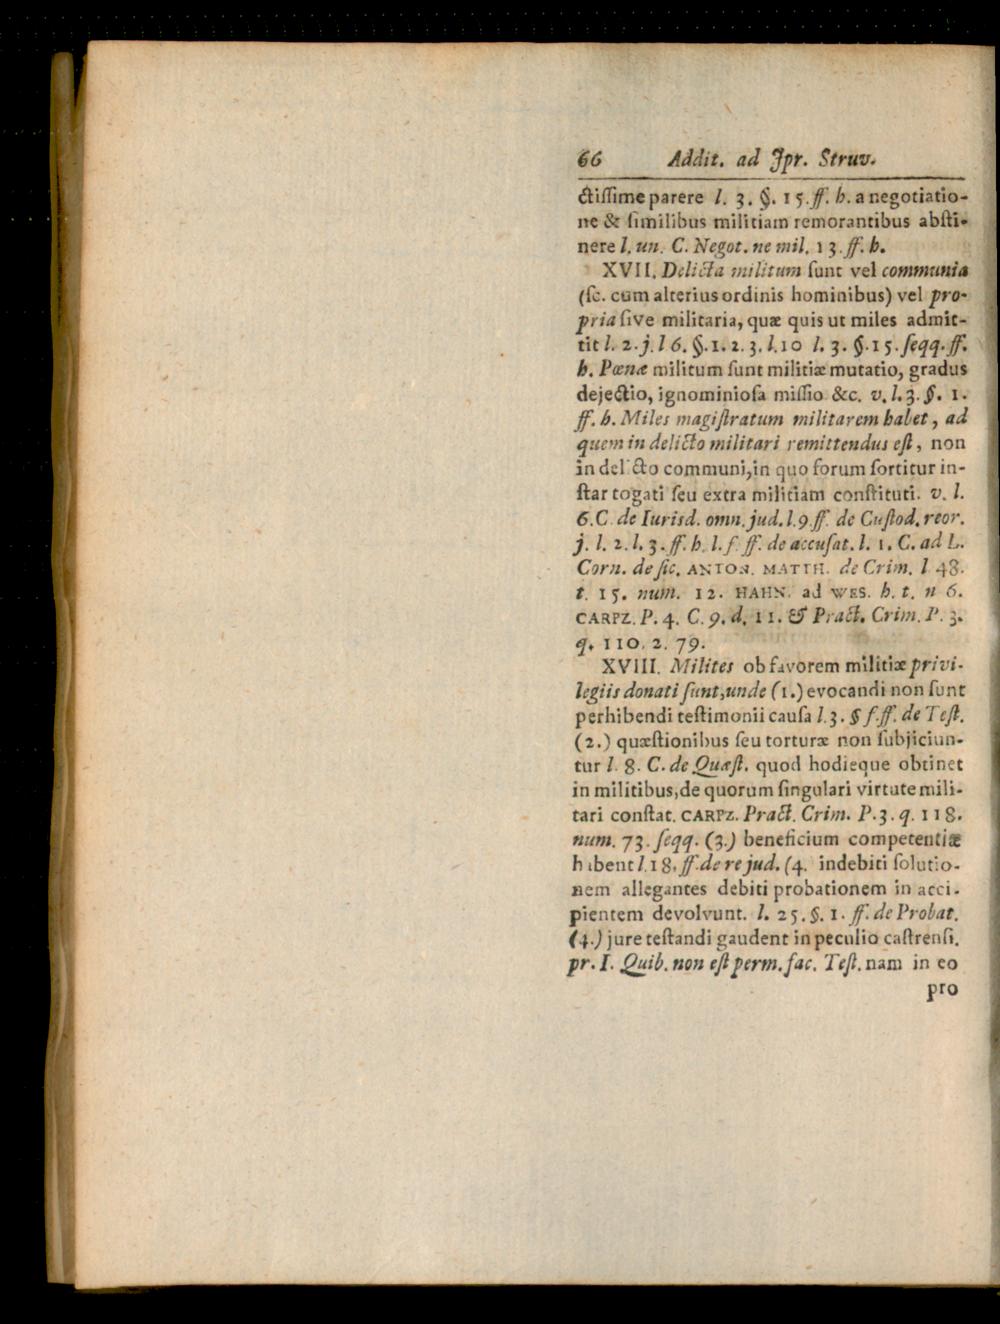 66 Addit. ad Jpr. Struv.
ctiſſime parere l. 3. §. 15. ff. h. a negotiatio-
ne & ſimilibus militiam remorantibus abſti-
nere l. un. C. Negot. ne mil. 13. ff. h.
XVII. Delicta militum ſunt vel communia
(ſc. cum alterius ordinis hominibus) vel pro-
pria ſive militaria, quæ quis ut miles admit-
tit l. 2. j. l 6. §. 1. 2. 3. l. 10 l. 3. §. 15. ſeqq. ff.
h. Pœnæ militum ſunt militiæ mutatio, gradus
dejectio, ignominioſa miſſio &c. v. l. 3. §. 1.
ff. h. Miles magiſtratum militarem habet, ad
quem in delicto militari remittendus eſt, non
in del cto communi, in quo forum ſortitur in-
ſtar togati ſeu extra militiam conſtituti. v. l.
6. C. de Iurisd. omn. jud. l. 9. ff. de Cuſtod. reor.
j. l. 2. l. 3. ff. h. l. f. ff. de accuſat. l. 1. C. ad L.
Corn. de ſic. ANTON. MATTH. de Crim. l 48.
t. 15. num. 12. HAHN. ad WES. h. t. n 6.
CARPZ. P. 4. C. 9. d. 11. & Pract. Crim. P. 3.
q. 110. 2. 79.
XVIII. Milites ob favorem militiæ privi-
legiis donati ſunt, unde (1.) evocandi non ſunt
perhibendi teſtimonii cauſa l. 3. § f. ff. de Teſt.
(2.) quæſtionibus ſeu torturæ non ſubjiciun-
tur l. 8. C. de Quæſt. quod hodieque obtinet
in militibus, de quorum ſingulari virtute mili-
tari conſtat. CARPZ. Pract. Crim. P. 3. q. 118.
num. 73. ſeqq. (3.) beneficium competentiæ
habent l. 18. ff. de re jud. (4. indebiti ſolutio-
nem allegantes debiti probationem in acci-
pientem devolvunt. l. 25. §. 1. ff. de Probat.
(4.) jure teſtandi gaudent in peculio caſtrenſi.
pr. I. Quib. non eſt perm. fac. Teſt. nam in eo
pro